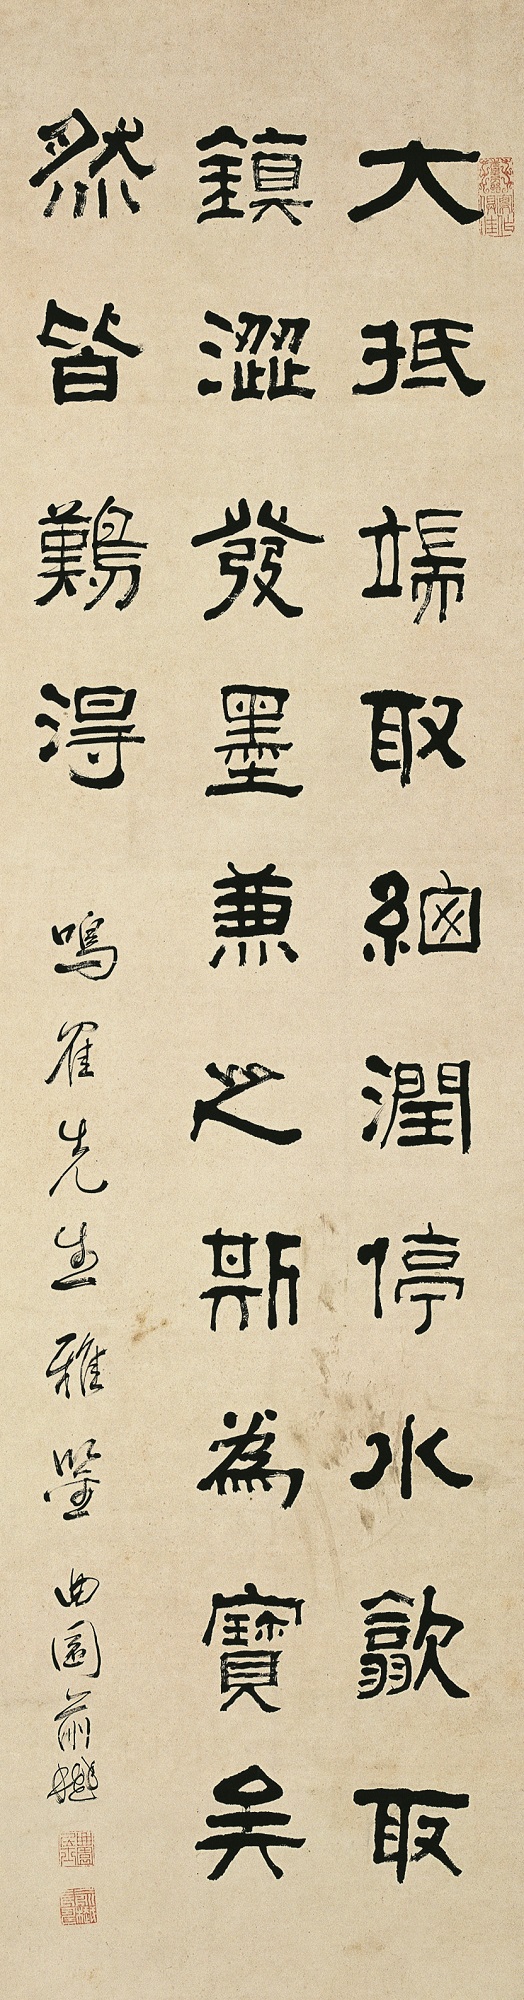 大抵端取細潤停水歙取
鎮澀發墨兼之斯為寶矣
然皆難得
鳴隺先生雅鑒 曲園俞樾